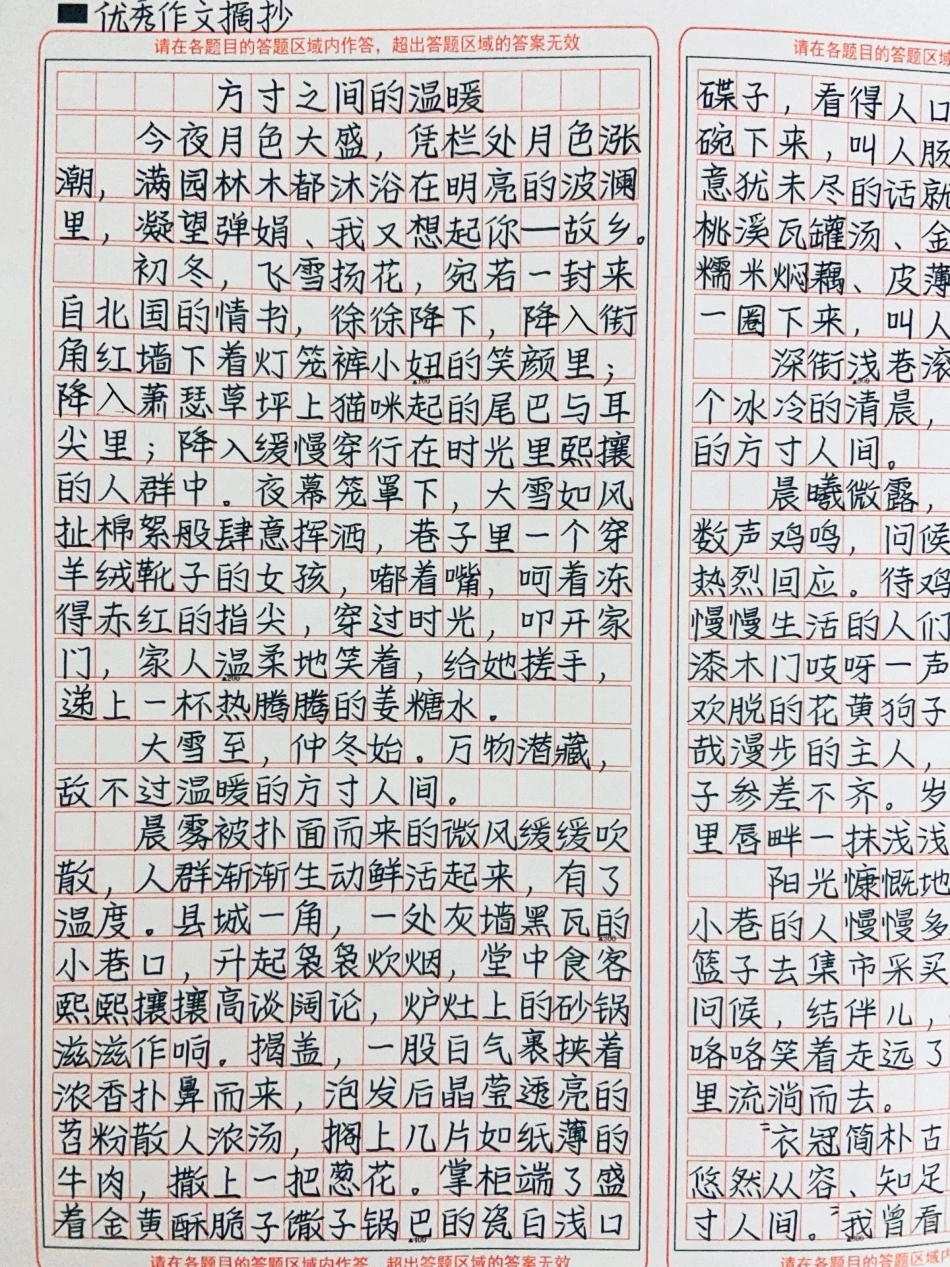 ■优秀作文摘抄
请在各题目的答题区域内作答，超出答题区域的答案无效
方寸之间的温暖
今夜月色大盛，凭栏处月色涨
潮，满园林木都沐浴在明亮的波澜
里，凝望弹娟、我又想起你一故乡。
初冬，飞雪扬花，宛若一封来
自北国的情书，徐徐降下，降入街
角红墙下着灯笼裤小妞的笑颜里；
降入萧瑟草坪上猫咪起的尾巴与耳
尖里；降入缓慢穿行在时光里熙攘
的人群中。夜幕笼罩下，大雪如风
扯棉絮般肆意挥洒，巷子里一个穿
羊绒靴子的女孩，嘟着嘴，呵着冻
得赤红的指尖，穿过时光，叩开家
门，家人温柔地笑着，给她搓手，
递上一杯热腾腾的姜糖水。
大雪至，仲冬始。万物潜藏，
敌不过温暖的方寸人间。
晨雾被扑面而来的微风缓缓吹
散，人群渐渐生动鲜活起来，有了
温度。县城一角，一处灰墙黑瓦的
小巷口，升起袅袅炊烟，堂中食客
熙熙攘攘高谈阔论，炉灶上的砂锅
滋滋作响。揭盖，一股白气裹挟着
浓香扑鼻而来，泡发后晶莹透亮的
苕粉散入浓汤，搁上几片如纸薄的
牛肉，撒上一把葱花。掌柜端了盛
着金黄酥脆子馓子锅巴的瓷白浅口
▲100
▲200
▲300
▲400
请在各题目的答题区域内作答，超出答题区域的答案无效
请在各题目的答题区域
碟子，看得人口
碗下来，叫人肠
意犹未尽的话就
桃溪瓦罐汤、金
糯米焖藕、皮薄
一圈下来，叫人
深街浅巷滚
个冰冷的清晨，
的方寸人间。
晨曦微露，
数声鸡鸣，问候
热烈回应。待鸡
慢慢生活的人们
漆木门吱呀一声
欢脱的花黄狗子
哉漫步的主人，
子参差不齐。岁
里唇畔一抹浅浅
阳光慷慨地
小巷的人慢慢多
篮子去集市采买
问候，结伴儿，
咯咯笑着走远了
里流淌而去。
“衣冠简朴古
悠然从容、知足
寸人间。”我曾看
请在各题目的答题区域内